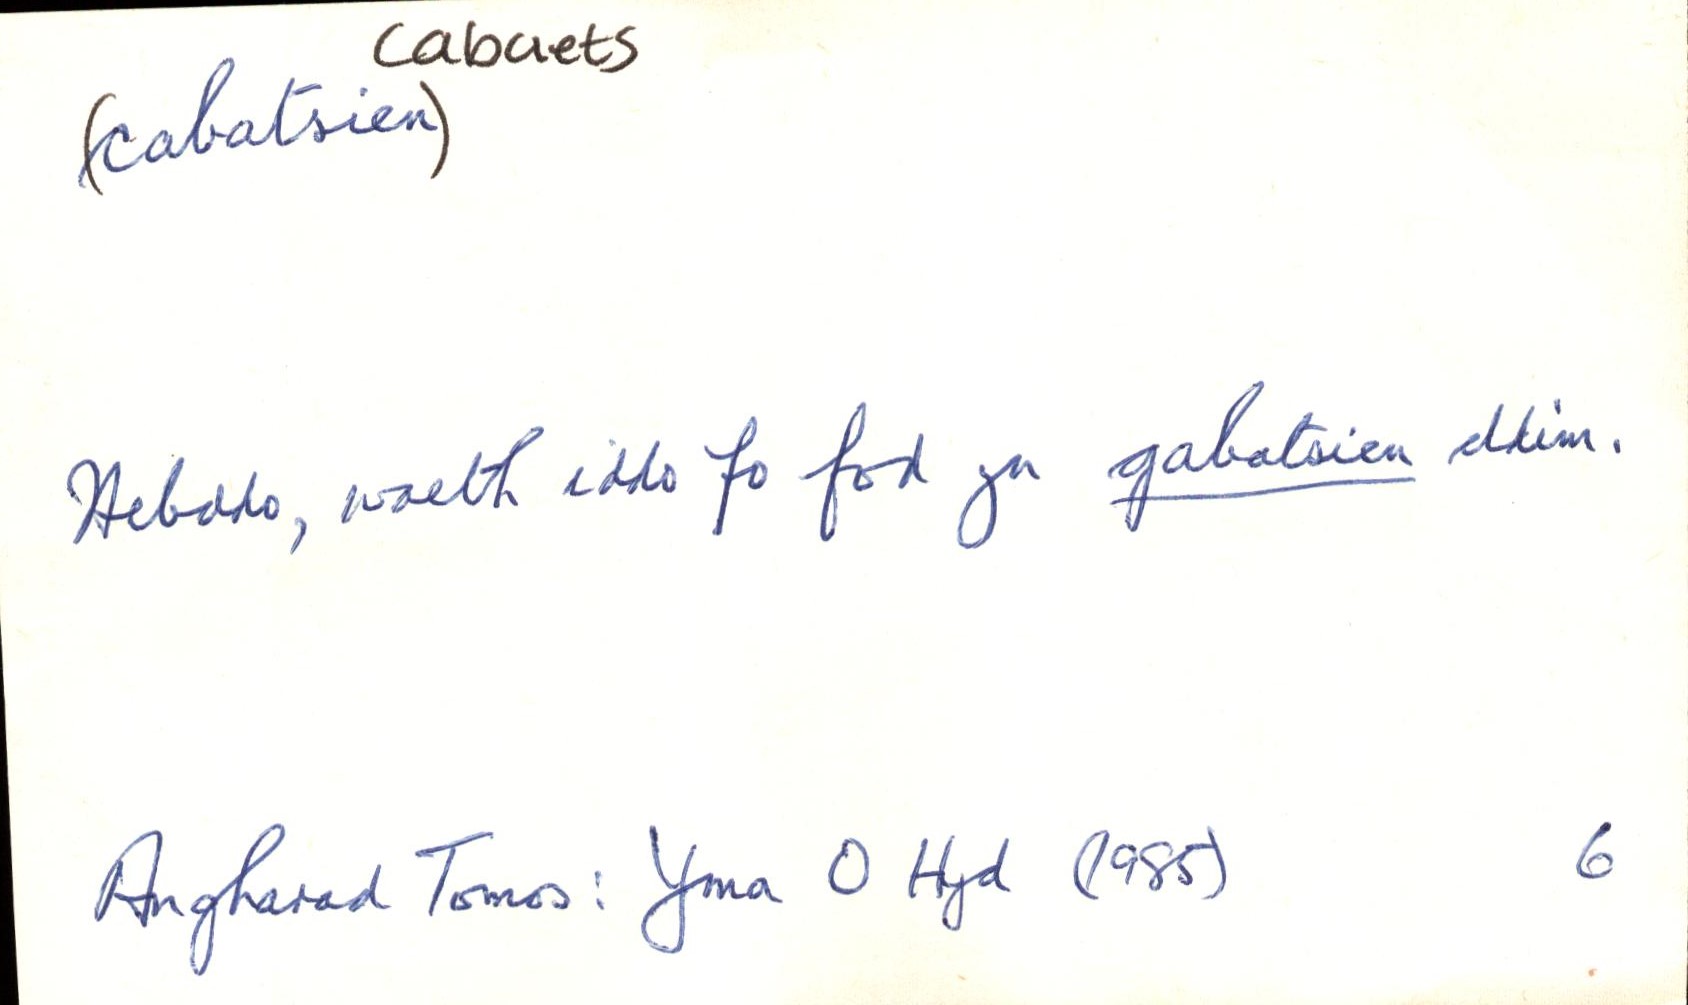 Cabaets
(cabatsien)
Hebddo, waeth iddo fo fod yn gabatsien ddim.
Angharad Tomos: Yma O Hyd (1985) 6